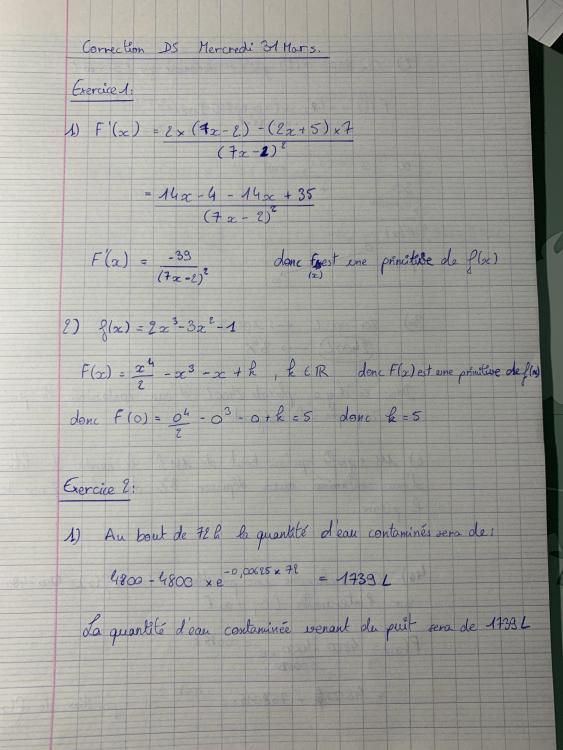 Correction DS Mercredi 31 Mars.
Exercice 1:
1) F'(x) = 2×(7x-2) - (2x+5)×7 / (7x-2)²
= 14x-4 - 14x + 35 / (7x-2)²
F'(x) = -39 / (7x-2)² donc F(x) est une primitive de f(x)
2) f(x) = 2x³-3x²-1
F(x) = x⁴/2 - x³ - x + k , k ∈ ℝ donc F(x) est une primitive de f(x)
donc F(0) = 0⁴/2 - 0³ - 0 + k = 5 donc k = 5
Exercice 2:
1) Au bout de 72h la quantité d'eau contaminés sera de:
4800 - 4800 × e^-0,00625×72 = 1739 L
La quantité d'eau contaminée venant du puit sera de 1739L